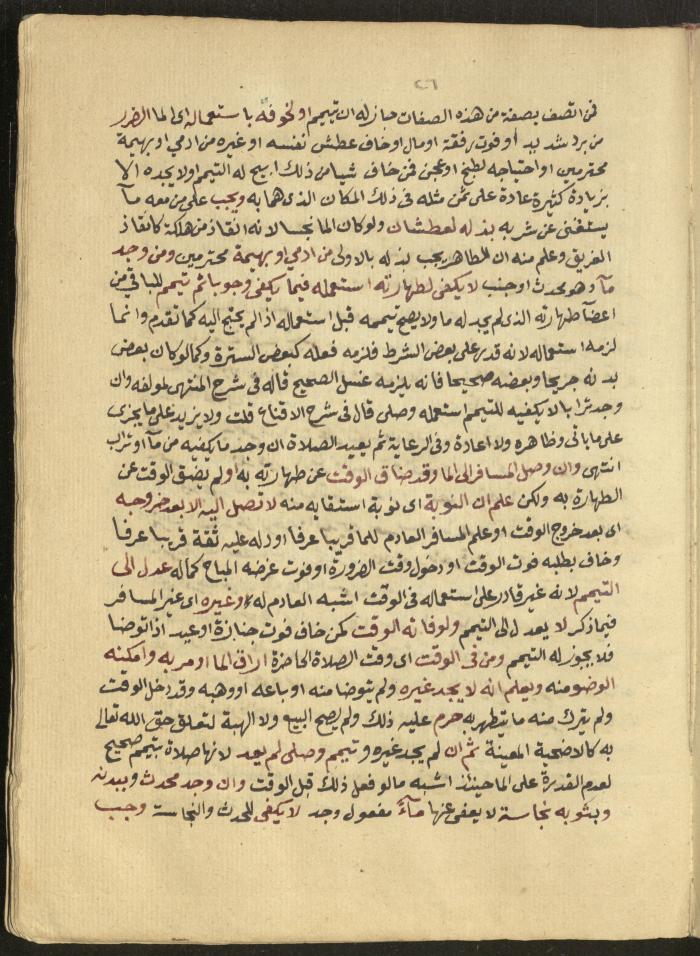 ٢٦
فمن اتصف بصفة من هذه الصفات جاز له ان تيمم او لخوفه باستعماله اى الما الضرر
من برد شديد أو فوت رفقة او مال او خاف عطش نفسه او غيره من ادمي او بهيمة
محترمين او احتياجه لطبخ او عجن فمن خاف شيا من ذلك ابيح له التيمم او لا يجده الا
بزيادة كثيرة عادة على ثمن مثله في ذلك المكان الذى هما به ويجب على من معه مآ
يستغنى عن شربه بذله لعطشان ولو كان الما نجسا لانه انقاذ من هلكة كانقاذ
الغريق وعلم منه ان الطاهر يجب بذله بالاولى من ادمي او بهيمة محترمين ومن وجد
مآ وهو محدث او جنب لا يكفى لطهارته استعمله فيما يكفى وجوبا ثم تيمم للباقي من
اعضآ طهارته الذى لم يجد له ما ولا يصح تيممه قبل استعماله اذا لم يحتج اليه كما تقدم وانما
لزمه استعماله لانه قدر على بعض الشرط فلزمه فعله كبعض السترة وكما لو كان بعض
بدنه جريحا وبعضه صحيحا فانه يلزمه غسل الصحيح قاله في شرح المنتهى لمولفه وان
وجد ترابا لا يكفيه للتيمم استعمله وصلى قال فى شرح الاقناع قلت ولا يزيد على ما يجزى
على ما ياتى وظاهره ولا اعادة وفى الرعاية ثم يعيد الصلاة ان وجد ما يكفيه من مآ او تراب
انتهى وان وصل المسافر الى الما وقد ضاق الوقت عن طهارته به او لم يضق الوقت عن
الطهارة به ولكن علم ان النوبة اى نوبة استقايه منه لا تصل اليه الا بعد خروجه
اى بعد خروج الوقت او علم المسافر العادم للما قريبا عرفا او دله عليه ثقة قريبا عرفا
وخاف بطلبه فوت الوقت او دخول وقت الضرورة او فوت غرضه المباح كماله عدل الى
التيمم لانه غير قادر على استعماله في الوقت اشبه العادم له وغيره اى غير المسافر
فيما ذكر لا يعدل الى التيمم ولو فاته الوقت كمن خاف فوت جنازة او عيد اذا توضا
فلا يجوز له التيمم ومن فى الوقت اى وقت الصلاة الحاضرة اراق الما او مر به وامكنه
الوضو منه ويعلم انه لا يجد غيره ولم يتوضا منه او باعه او وهبه وقد دخل الوقت
ولم يترك منه ما يتطهر به حرم عليه ذلك ولم يصح البيع ولا الهبة لتعلق حق الله تعالى
به كالاضحية المعينة ثم ان لم يجد غيره وتيمم وصلى لم يعد لانها صلاة بتيمم صحيح
لعدم القدرة على الما حينئذ اشبه ما لو فعل ذلك قبل الوقت وان وجد محدث وببدنه
وبثوبه نجاسة لا يعفى عنها مآءً مفعول وجد لا يكفى للحدث والنجاسة وجب